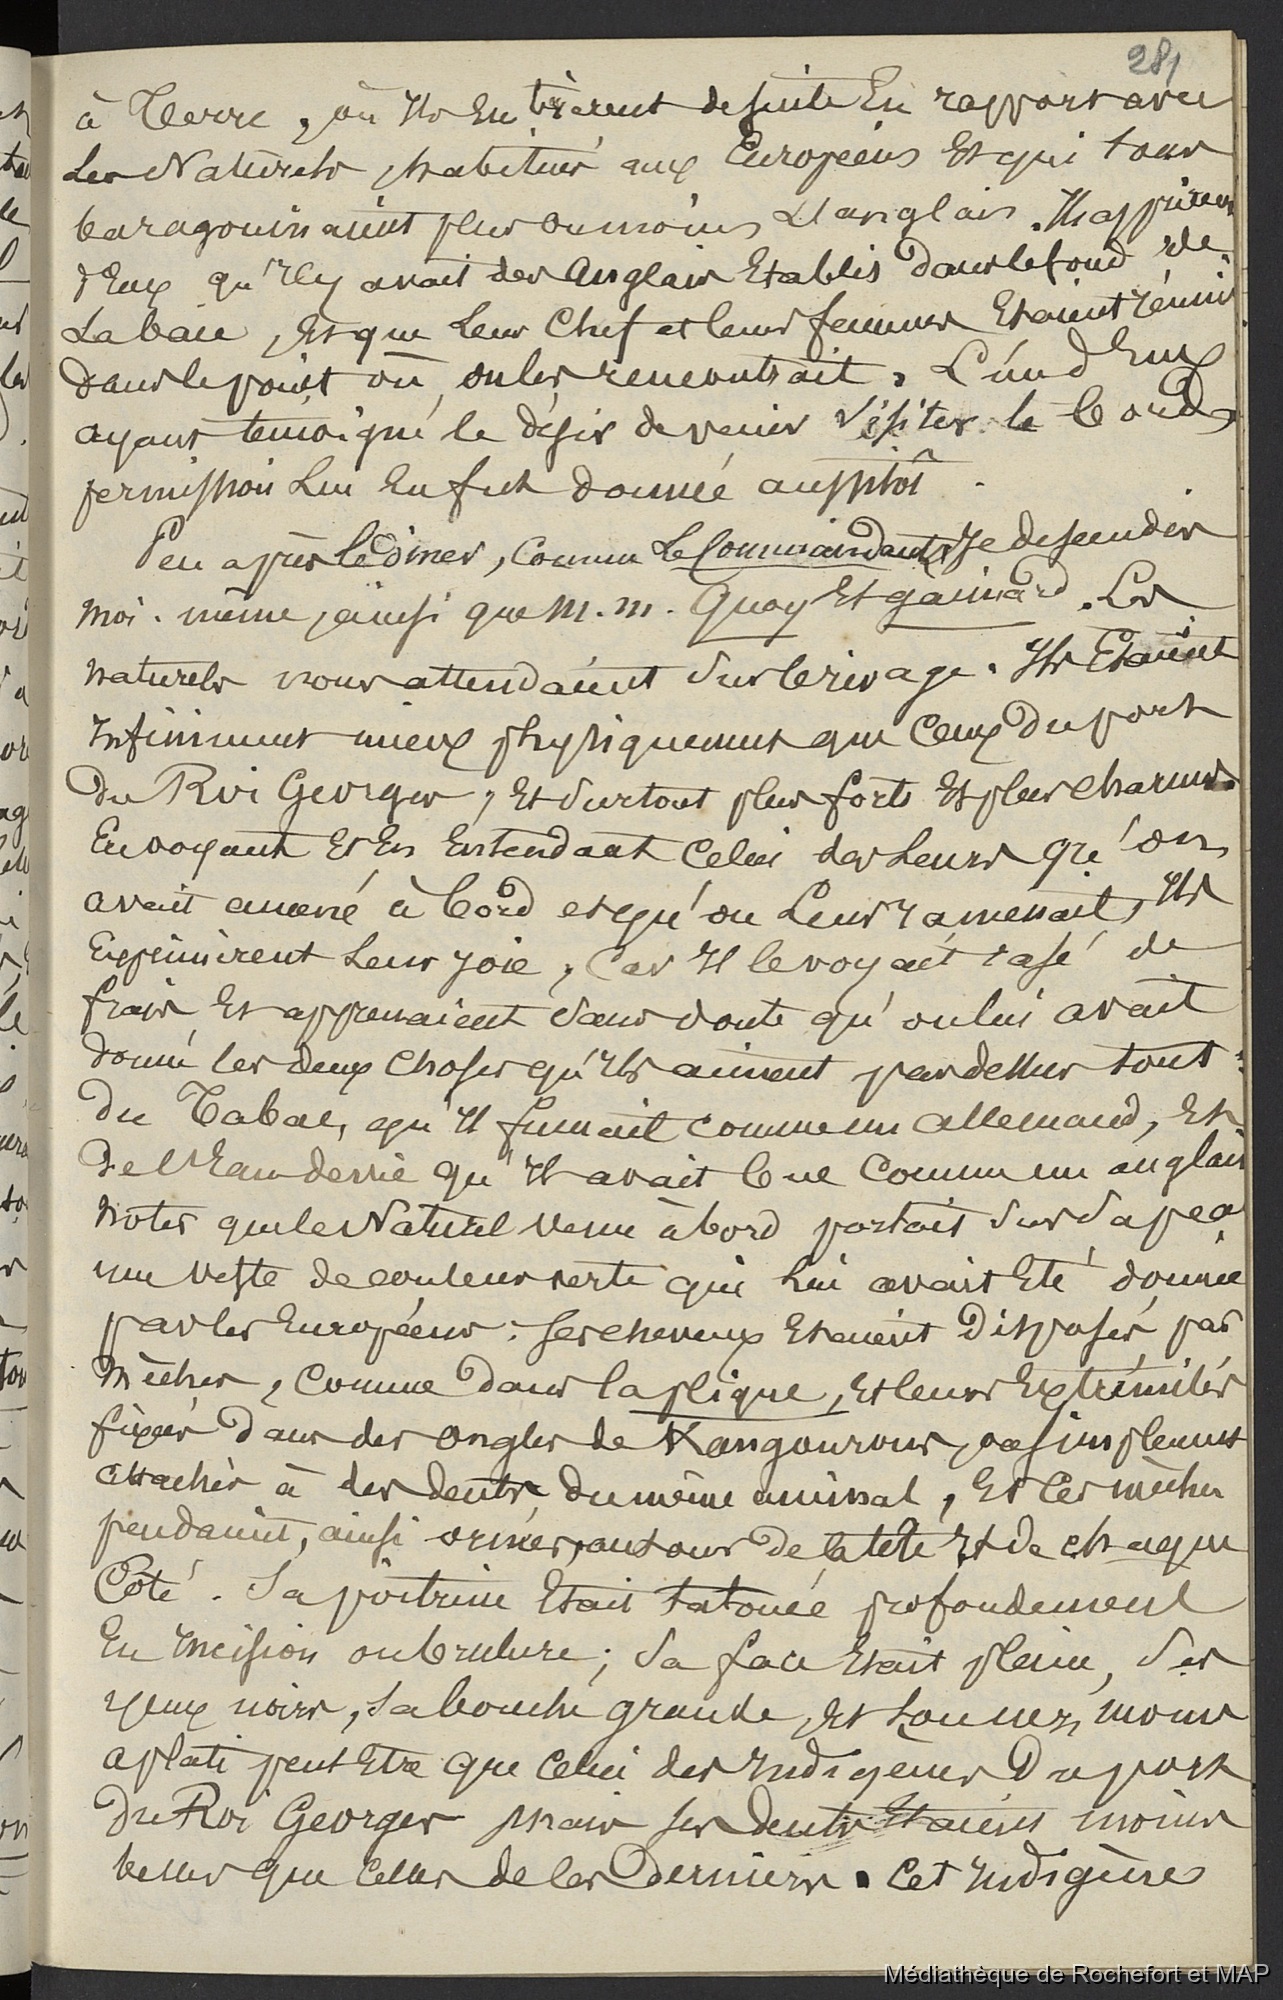 281
à Terre, où Ils Entrèrent desuite En rapport avec
Les Naturels, habitués aux Européens Et qui tous
baragouinaient plus ou moins L'anglais. Ils apprirent
d'Eux qu'Il y avait des Anglais Etablis dans le fond de
La baie, Et que Leur Chef et leurs femmes Etaient réunis
dans le point où on les rencontrait. L'un d'Eux
ayant témoigné le désir de venir visiter le bord,
permission Lui En fut donnée aussitôt.
Peu après le diner, comme Le Commandant, Je descendis
moi-même, ainsi que M.M. Quoy Et gaimard. Les
naturels nous attendaient sur le rivage. Ils Etaient
Infiniment mieux physiquement que Ceux du port
du Roi Georges, Et surtout plus forts Et plus charnus.
En voyant Et En Entendant Celui des Leurs qu'on
avait amené à bord et qu'on Leur ramenait, Ils
Exprimèrent Leur joie, Car Il le voyait rasé de
frais Et apprenaient sans doute qu'on lui avait
donné les deux choses qu'Ils aiment par dessus tout:
du Tabac, qu'Il fumait comme un allemand, Et
De l'Eau de vie qu'Il avait bue Comme un anglais
Notez que le Naturel venu à bord portait sur sa peau
une veste de couleur verte qui Lui avait Eté donnée
par les Européens: ses cheveux Etaient Disposés, par
Mèches, Comme dans la plique, Et leurs Extrémités
fixées dans des ongles de Kangourous, ou simplement
attachés à des dents du même animal, Et Ces mèches
pendaient, ainsi ornées, autour de la tête Et de chaque
Côté. Sa poitrine Etait tatouée profondement
En Incision ou brulure; Sa face Etait pleine, Ses
yeux noirs, Sa bouche grande, Et Son nez, moins
aplati peut Etre que Celui des Indigènes Du port
Du Roi Georges mais ses dents Etaient moins
belles que Celles de Ces Derniers. Cet Indigène
Médiathèque de Rochefort et MAP